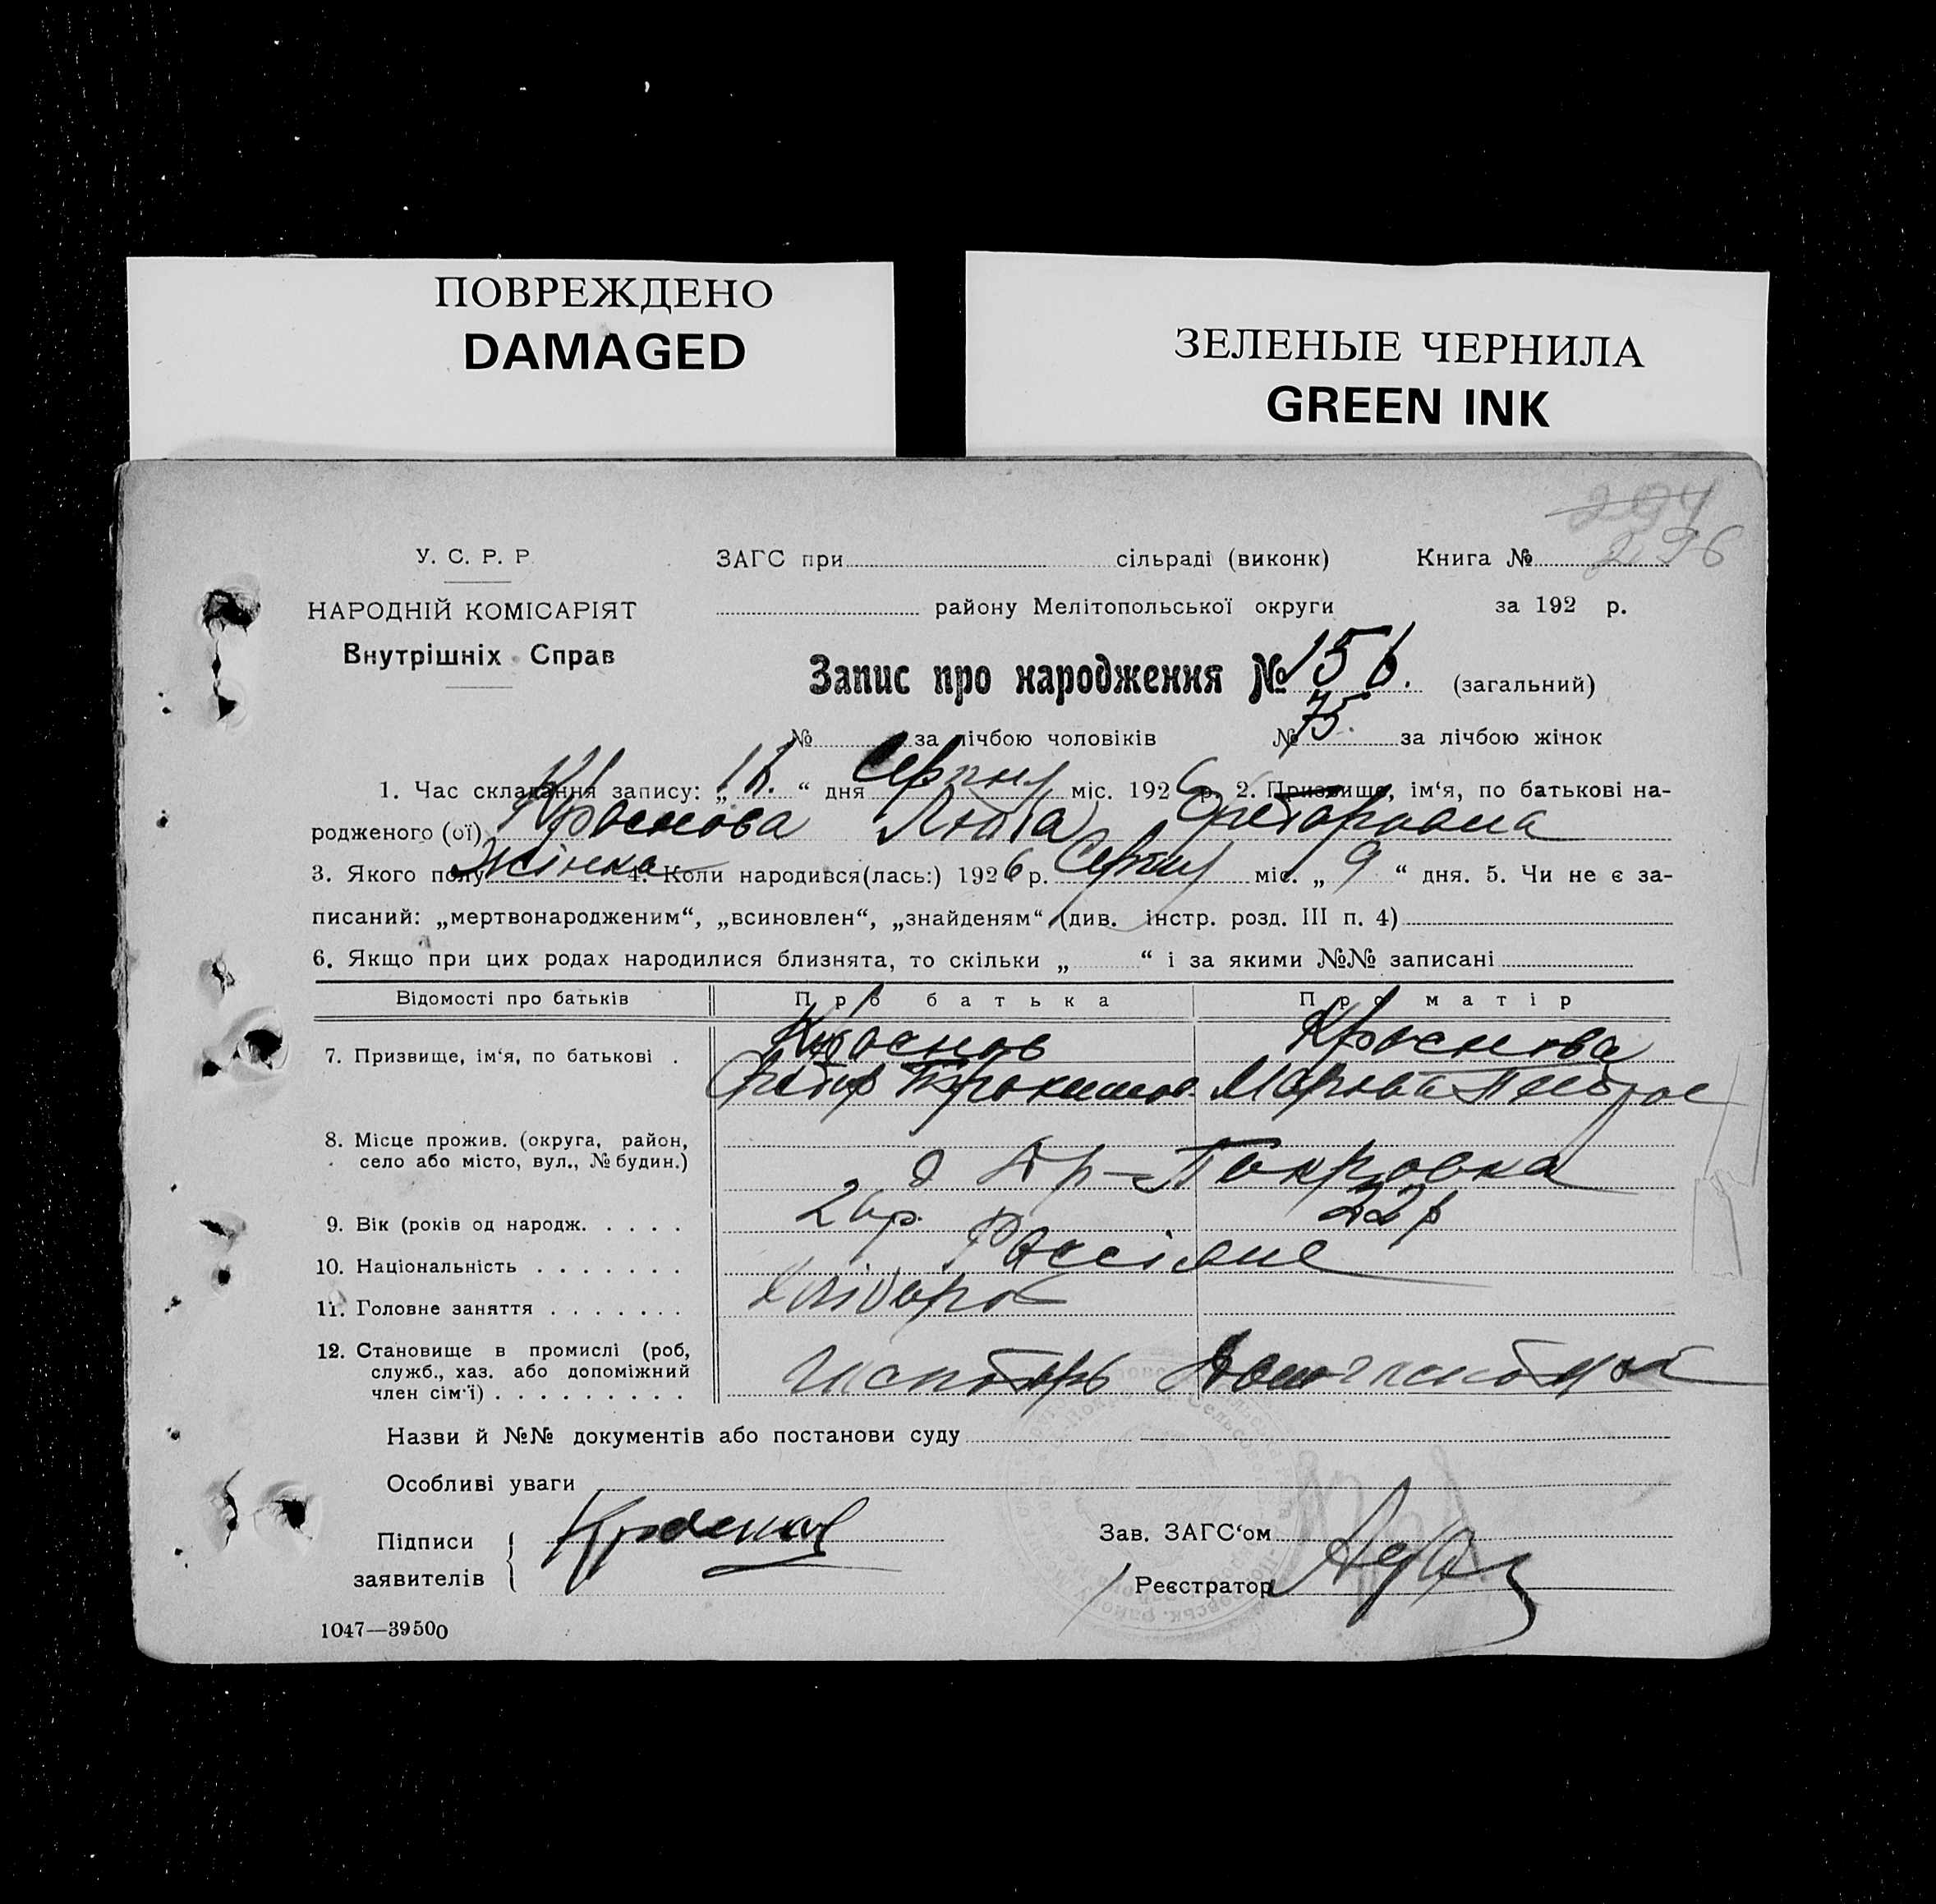 ПОВРЕЖДЕНО
DAMAGED
ЗЕЛЕНЫЕ ЧЕРНИЛА
GREEN INK
294
296
У. С. Р. Р.
НАРОДНІЙ КОМІСАРІЯТ
Внутрішніх Справ
ЗАГС при сільраді (виконк) Книга №
району Мелітопольської округи за 192 р.
Запис про народження № 156. (загальний)
№ за лічбою чоловіків № 75. за лічбою жінок
1. Час складання запису: „16.“ дня Серпня міс. 1926 р. 2. Призвище, ім‘я, по батькові на-
родженого (ої) Краснова
3. Якого полу Жінка 4. Коли народився(лась:) 1926 р. Серпня міс. „9“ дня. 5. Чи не є за-
писаний: „мертвонародженим“, „всиновлен“, „знайденям“ (див. інстр. розд. III п. 4)
6. Якщо при цих родах народилися близнята, то скільки „ “ і за якими №№ записані
Відомості про батьків Про батька Про матір
7. Призвище, ім‘я, по батькові . Краснов Краснова
8. Місце прожив. (округа, район,
село або місто, вул., № будин.)
Покровка
9. Вік (років од народж. . . . . 26р. 22р
10. Національність . . . . . . .
11. Головне заняття . . . . . . . Хлібороб
12. Становище в промислі (роб,
служб., хаз. або допоміжний
член сім‘ї) . . . . . . . . .
Назви й №№ документів або постанови суду
Особливі уваги
Підписи
заявителів
Краснов
Зав. ЗАГС‘ом
Реєстратор
1047—39500